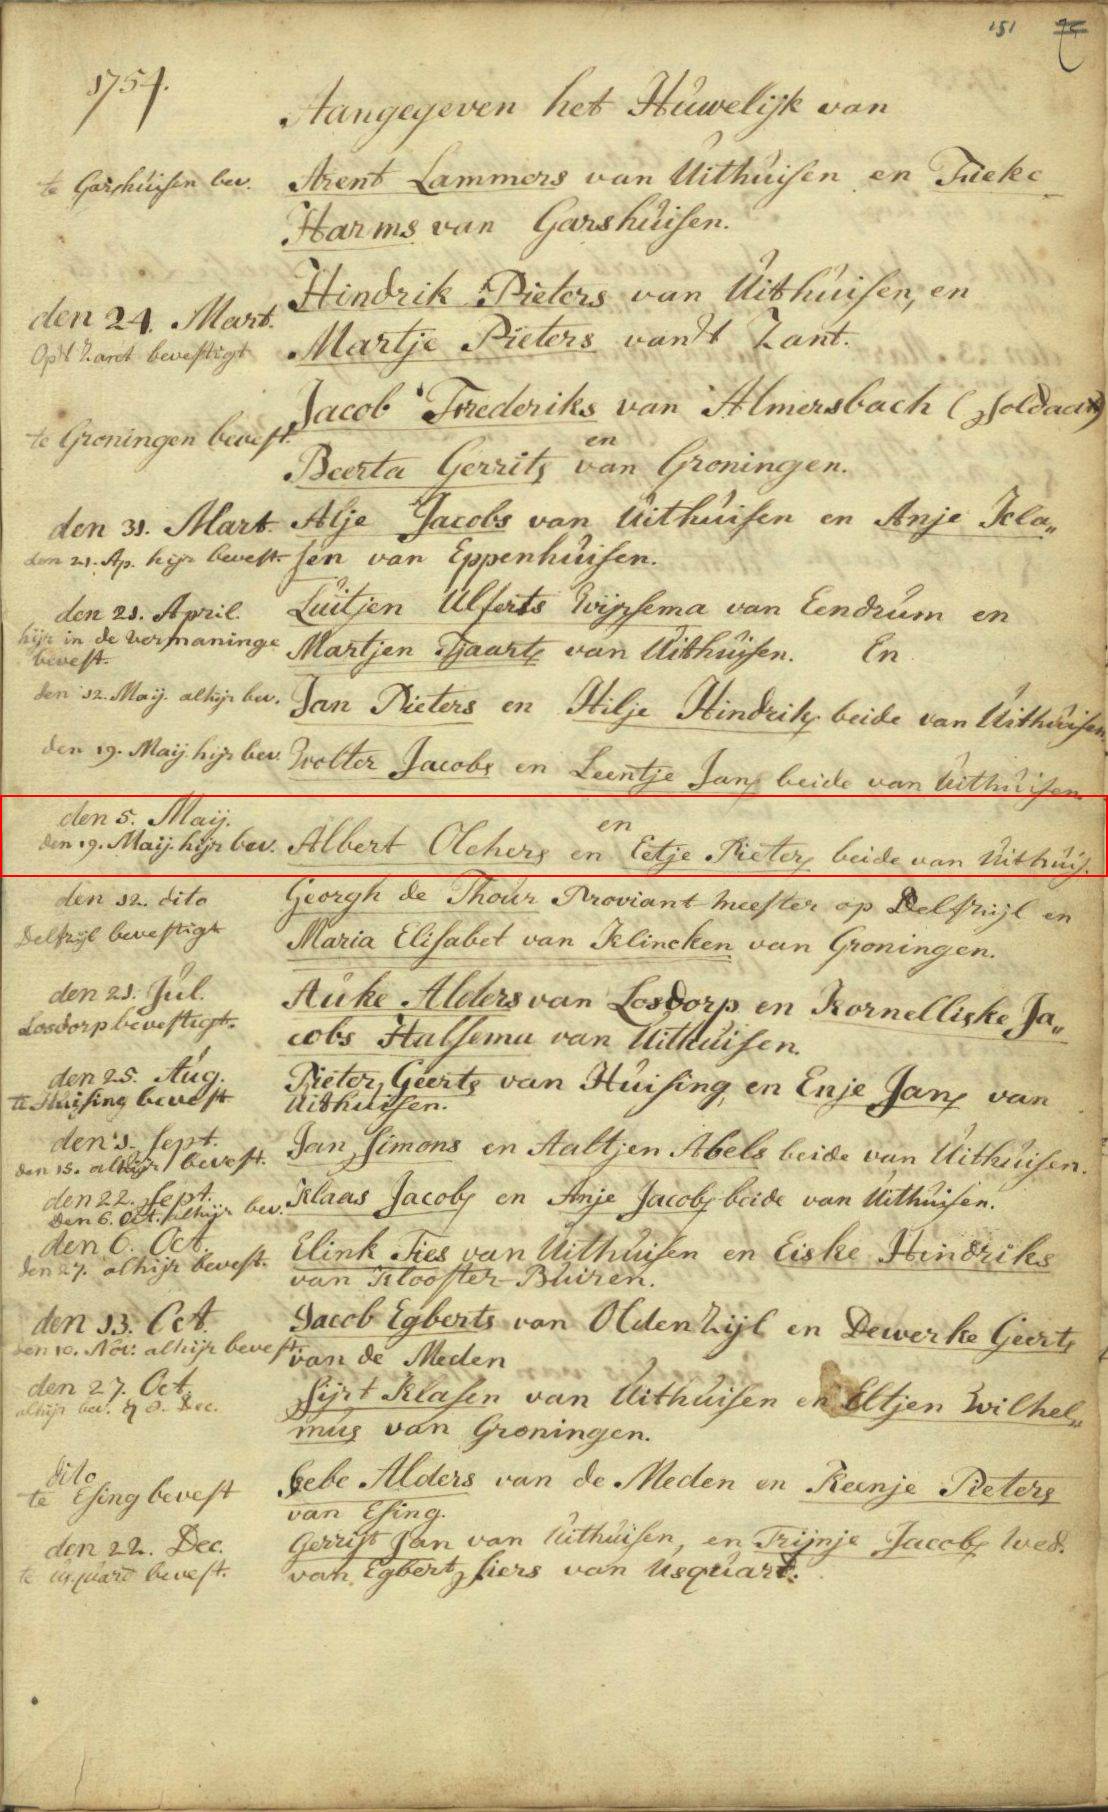 151
1754.
Aangegeven het Huwelijk van
te Garshuisen bev. Arent Lammers van Uithuisen en Trieke
Harms van Garshuisen.
Hindrik Pieters van Uithuisen, en
den 24. Mart.
Martje Pieters van't Zant.
Op't Zant bevestigt
Jacob Frederiks van Almersbach (soldaat)
te Groningen bevest.
en
Beerta Gerrits van Groningen.
den 31. Mart. Alje Jacobs van Uithuisen en Anje Kla„
den 21. Ap. hijr bevest. sen van Eppenhuisen.
den 21. April. Luitjen Ulferts Wijrsema van Eendrum en
hijr in de vermaninge
Martjen Tjaarts van Uithuisen. En
bevest.
den 12. Maij. alhijr bev. Jan Pieters en Hilje Hindriks beide van Uithuisen
den 19. Maij hijr bev. Wolter Jacobs en Leentje Jans beide van Uithuisen
den 5. Maij.
en
den 19. Maij. hijr bev. Albert Olchers en Eetje Pieters beide van Uithuis.
den 12. dito Georgh de Thour Proviant-meester op Delfzijl en
Delfzijl bevestigt Maria Elisabet van Klincken van Groningen.
den 21. Jul. Auke Alders van Losdorp en Kornelliske Ja„
Losdorp bevestigt. cobs Halsema van Uithuisen.
den 25. Aug. Pieter Geerts van Huising, en Enje Jans van
te Huising bevest Uithuisen.
den 1. Sept. Jan Simons en Aaltjen Abels beide van Uithuisen.
den 15. alhijr bevest.
den 22. Sept. Klaas Jacobs en Anje Jacobs beide van Uithuisen.
den 6. Oct. alhijr bev.
den 6. Oct. Elink Ties van Uithuisen en Eiske Hindriks
den 27. alhijr bevest. van Klooster-Buiren.
den 13. Oct. Jacob Egberts van Oldenzijl en Dewerke Geerts
den 10. Nov. alhijr bevest. van de Meden
den 27. Oct. Sijrt Klasen van Uithuisen en Eltjen Wilhel„
alhijr bev. Dec. mus van Groningen.
dito Gebe Alders van de Meden en Reenje Pieters
te Esing bevest van Esing.
den 22. Dec. Gerrijt Jan van Uithuisen, en Trijnje Jacobs Wed.
te usquard bevest. van Egbert Siers van Usquart.